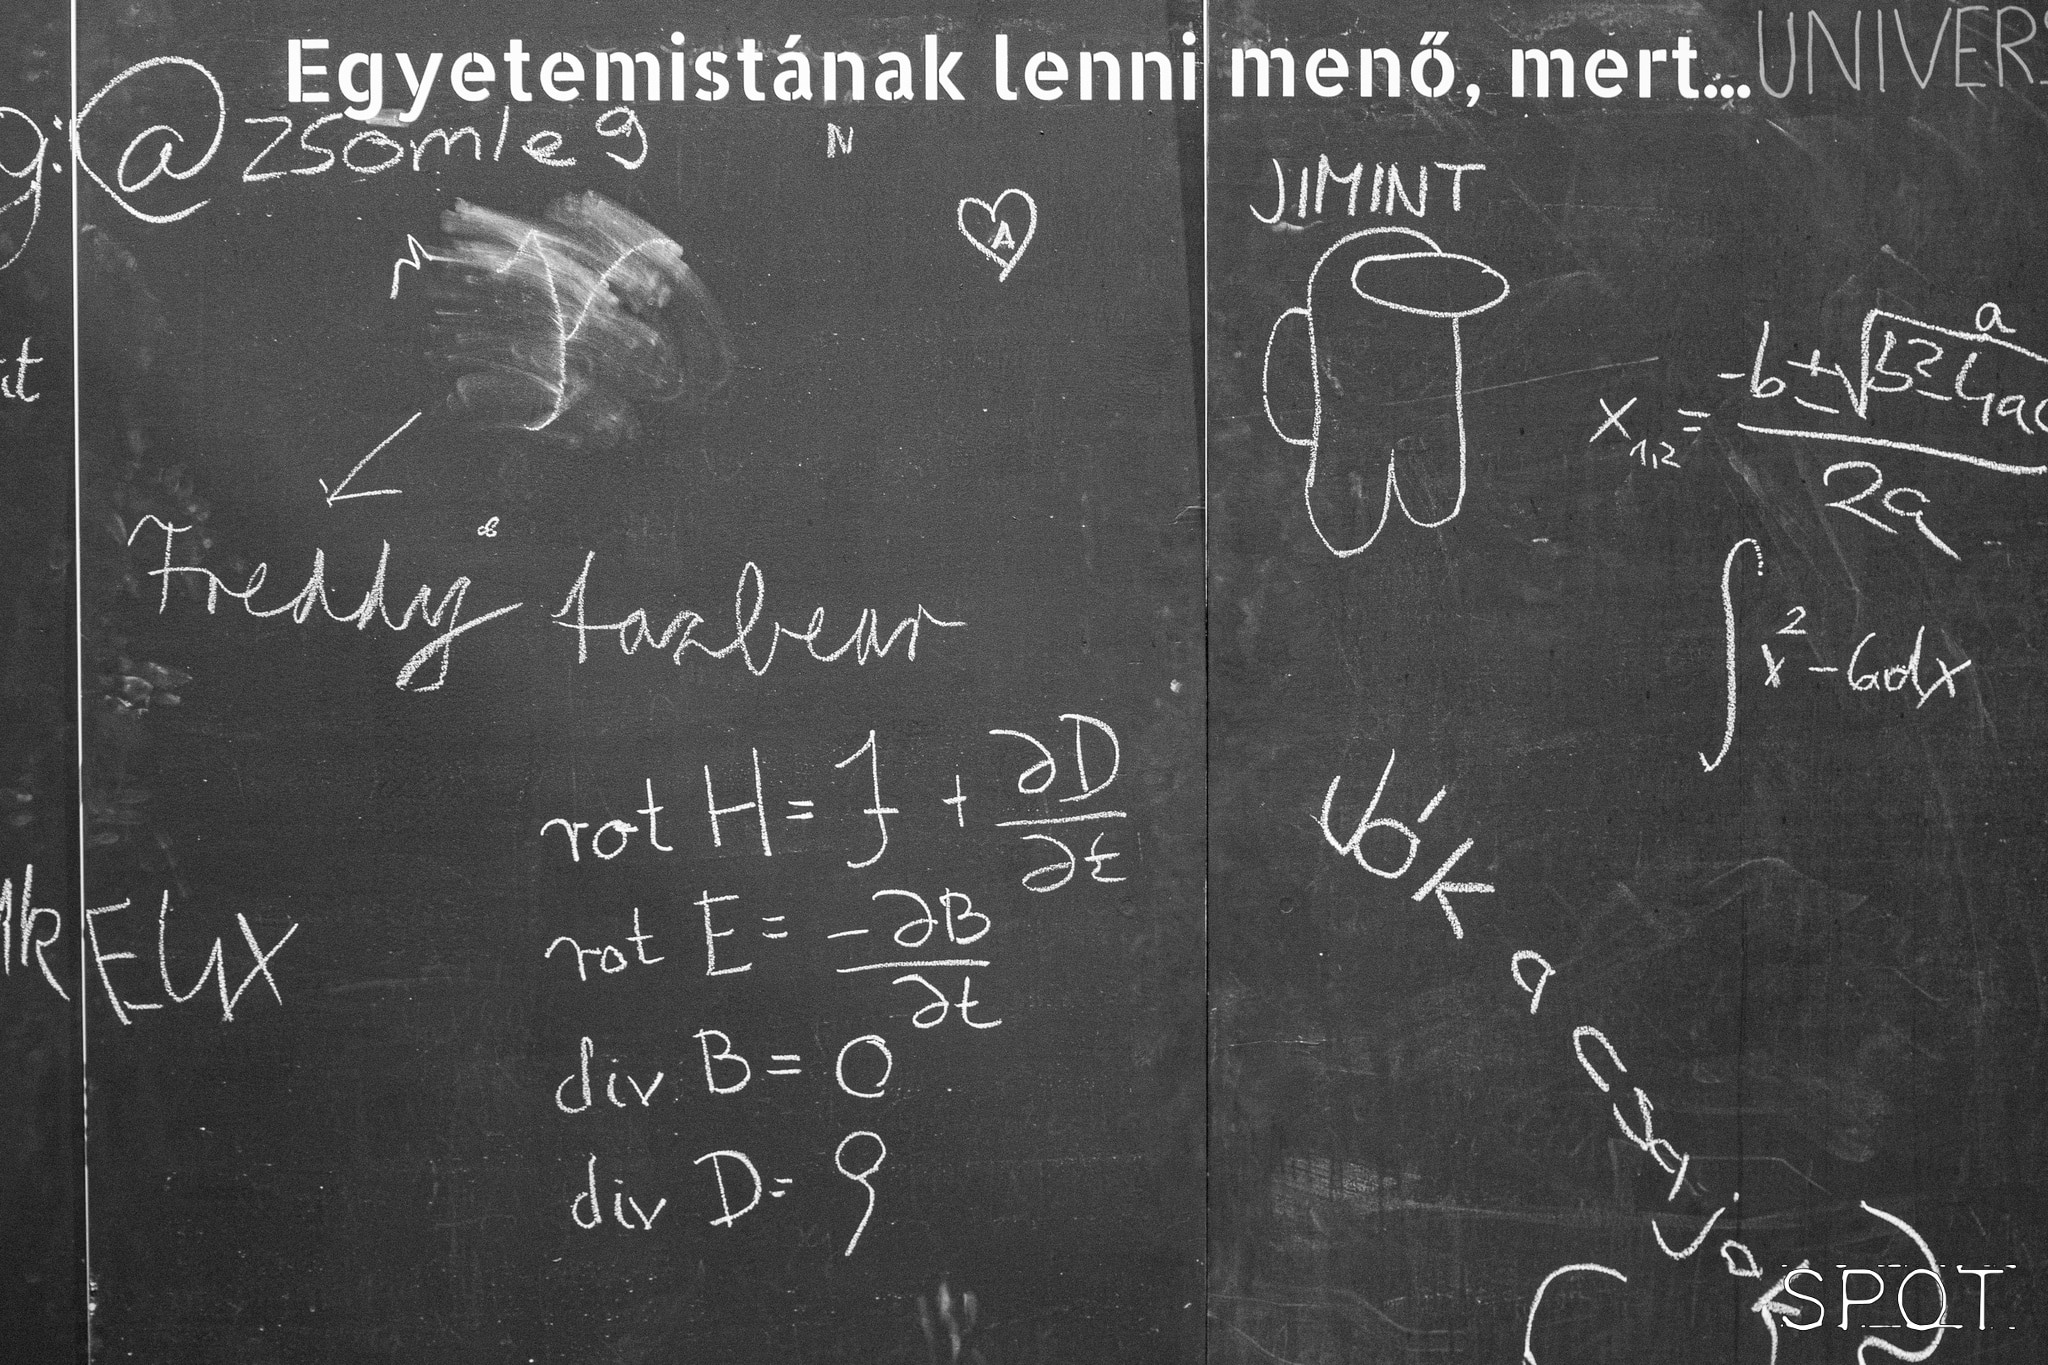 Egyetemistának lenni menő, mert...
UNIVERS
g: @zsömle9
N
A
JIMINT
a
X1,2 = -b±√b²-4ac
2a
Freddy fazbear
∫ x² - 6dx
rot H = J + ∂D
∂t
rot E = -∂B
∂t
div B = 0
div D = ρ
Jók a csajok
SPOT